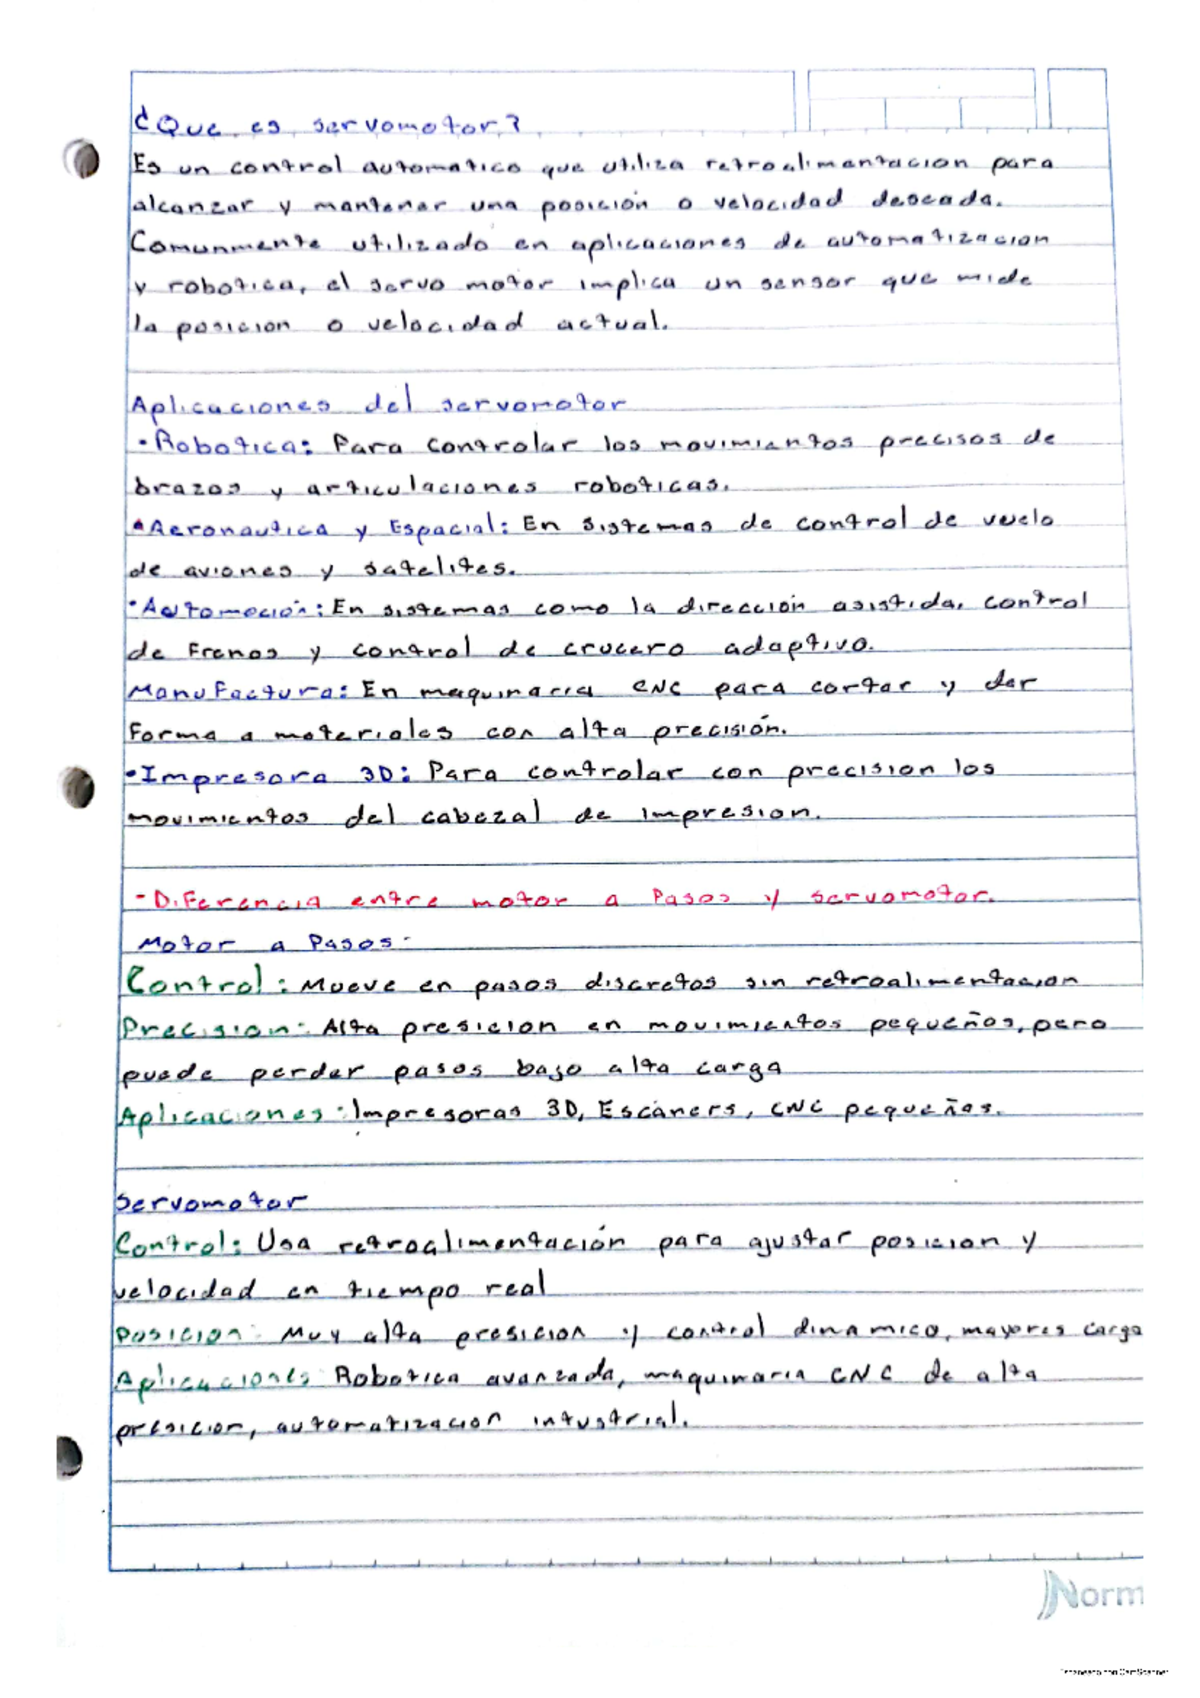 ¿Que es servomotor?
Es un control automatico que utiliza retroalimentacion para
alcanzar y mantener una posición o velocidad deseada.
Comunmente utilizado en aplicaciones de automatizacion
y robotica, el servo motor implica un sensor que mide
la posicion o velocidad actual.
Aplicaciones del servomotor
•Robotica: Para controlar los movimientos precisos de
brazos y articulaciones roboticas.
•Aeronautica y Espacial: En sistemas de control de vuelo
de aviones y satelites.
•Automoción: En sistemas como la dirección asistida, control
de Frenos y control de crucero adaptivo.
Manufactura: En maquinaria CNC para cortar y dar
Forma a materiales con alta precisión.
•Impresora 3D: Para controlar con precision los
movimientos del cabezal de impresion.
-Diferencia entre motor a Pasos y servomotor.
Motor a Pasos-
Control: Mueve en pasos discretos sin retroalimentacion
Precision: Alta presicion en movimientos pequeños, pero
puede perder pasos bajo alta carga
Aplicaciones: Impresoras 3D, Escáners, CNC pequeñas.
Servomotor
Control: Usa retroalimentación para ajustar posicion y
velocidad en tiempo real
Posicion: Muy alta presicion y control dinamico, mayores carga
Aplicaciones: Robotica avanzada, maquinaria CNC de alta
presicion, automatizacion intustrial.
Norm
Escaneado con CamScanner